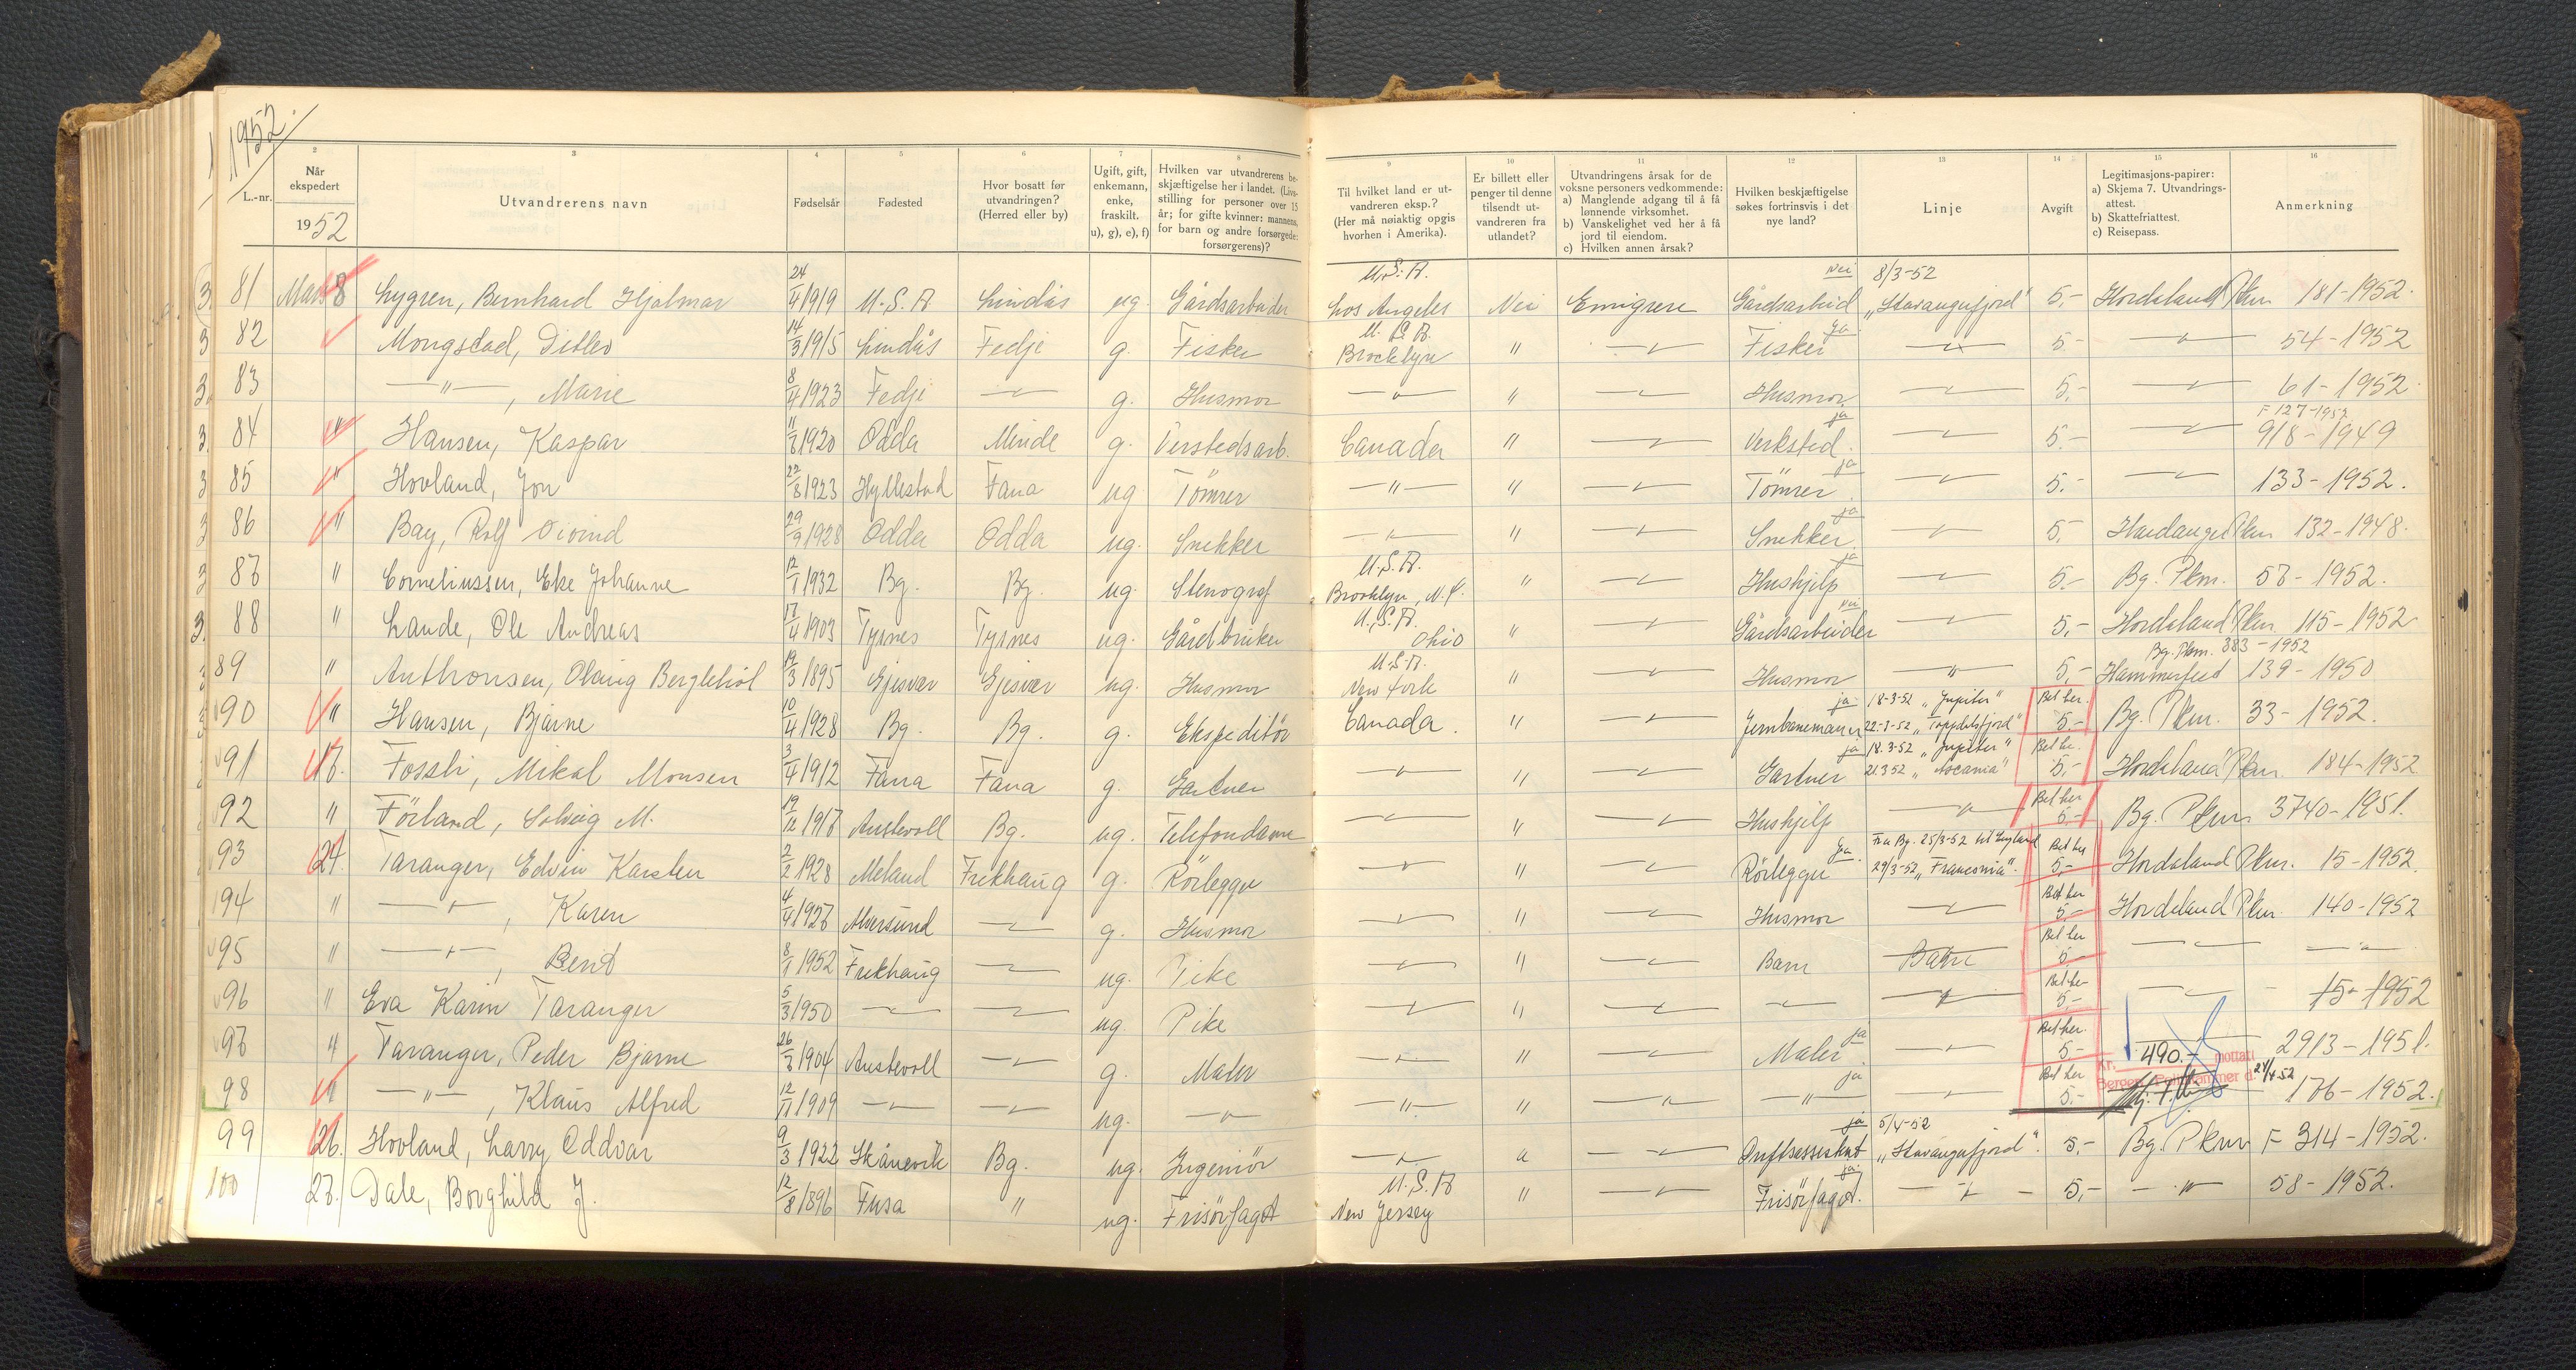 1952.
2 3 4 5 6 7 8 9 10 11 12 13 14 15 16
L.-nr. | Når ekspedert 1952 | Utvandrerens navn | Fødselsår | Fødested | Hvor bosatt før utvandringen? (Herred eller by) | Ugift, gift, enkemann, enke, fraskilt. u), g), e), f) | Hvilken var utvandrerens beskjæftigelse her i landet. (Livsstilling for personer over 15 år; for gifte kvinner: mannens, for barn og andre forsørgede: forsørgerens)? | Til hvilket land er utvandreren eksp.? (Her må nøiaktig opgis hvorhen i Amerika). | Er billett eller penger til denne tilsendt utvandreren fra utlandet? | Utvandringens årsak for de voksne personers vedkommende: a) Manglende adgang til å få lønnende virksomhet. b) Vanskelighet ved her å få jord til eiendom. c) Hvilken annen årsak? | Hvilken beskjæftigelse søkes fortrinsvis i det nye land? | Linje | Avgift | Legitimasjons-papirer: a) Skjema 7. Utvandrings-attest. b) Skattefriattest. c) Reisepass. | Anmerkning
3. 81 Mars 8 Lygren, Bernhard Hjalmar 24/4 1919 U.S.A Lindås ug. Gårdsarbeider U.S.A. Los Angeles Nei Emigrere Nei Gårdsarbeid 8/3-52 "Stavangerfjord" 5,- Hordaland Pkm 181-1952.
3 82 Mongstad, Ditlev 14/3 1915 Lindås Fedje g. Fisker U.S.A. Brocklyn " —"— ja Fisker —"— 5- —"— 54-1952
3. 83 —"—, Marie 8/4 1923 Fedje —"— g. Husmor —"— " —"— Husmor —"— 5,- —"— 61-1952
3. 84 " Hansen, Kaspar 11/8 1920 Odda Minde g. Verstedsarb. Canada " —"— ja Verksted. —"— 5.- —"— F 127-1952 918-1949
3 85 " Hovland, Jon 22/8 1923 Hyllestad Fana ug Tømrer —"— " —"— ja Tømrer. —"— 5.- —"— 133-1952.
3 86 " Bay, Rolf Oivind 29/9 1928 Odda Odda ug. Snekker —"— " —"— ja Snekker. —"— 5,- Hardanger Pkm 132-1948.
3 87 " Corneliussen, Eke Johanne 12/1 1932 Bg. Bg. ug. Stenograf U.S.A. Brooklyn, N.Y. " —"— ja Hushjelp —"— 5.- Bg. Pkm. 57-1952.
3. 88 " Lande, Ole Andreas 17/4 1903 Tysnes Tysnes ug. Gårdbruker U.S.A. Ohio " —"— Nei Gårdsarbeider —"— 5,- Hordaland Pkm 115-1952
3 89 " Anthonsen, Olaug Berglehiøl 19/3 1895 Gjesvær Gjesvær ug. Husmor U.S.A. New York " —"— Husmor —"— 5,- Bg. Pkm. 383-1952 Hammerfest 139-1950
3 90 " Hansen, Bjarne 10/4 1928 Bg. Bg. g. Ekspeditør Canada. " —"— ja Jernbanemann 18-3-52 "Jupiter" 22-3-52 "Topdalsfjord" Bet her. 5.- Bg. Pkm. 33-1952.
91 17. Fossli, Mikal Monsen 3/4 1912 Fana Fana g. Gartner —"— " —"— ja Gartner 18.3-52 "Jupiter" 21.3 52 "Ascania" Bet he. 5,- Hordaland Pkm. 184-1952
92 " Førland, Solveig M. 19/12 1917 Austevoll Bg. ug. Telefondame —"— " —"— Hushjelp —"— Bet her 5,- Bg. Pkm 3740-1951.
93 24. Taranger, Edvin Karsten 2/2 1928 Meland Frekhaug g. Rørlegger —"— " —"— Ja. Rørlegger Fra Bg. 25/3-52 til England 29/3-52 "Franconia". Bet her 5,- Hordaland Pkm. 15-1952.
94 " —"—, Karen 4/4 1927 Alversund —"— g. Husmor —"— " —"— Husmor —"— Bet her 5- Hordaland Pkm. 140-1952
95 " —"—, Berit 8/1 1952 Frekhaug —"— ug. Pike —"— " —"— Barn Barn Bet her 5- —"— —"—
96 " Eva Karin Taranger 5/3 1950 —"— —"— ug. Pike —"— " —"— —"— —"— Bet her 5.- —"— 15-1952
97 " Taranger, Peder Bjarne 26/3 1904 Austevoll —"— g. Maler —"— " —"— ja Maler. —"— Bet her. 5- 2913-1951.
Kr. 490.- mottatt
Bergen Politikammer d. 24/4 52
98 " —"—, Klaus Alfred 12/11 1909 —"— —"— ug. —"— —"— " —"— ja —"— —"— Bet her 5.- 176-1952.
99 26. Hovland, Larry Oddvar 9/3 1922 Skånevik Bg. ug. Ingeniør —"— " —"— ja 5/4-52 "Stavangerfjord". 5- Bg. Pkm F 314-1952.
100 27. Dale, Borghild J. 12/8 1896 Fusa " ug. Frisørfaget U.S.A New Jersey " —"— ja. Frisørfaget. —"— 5,- —"— 58-1952.